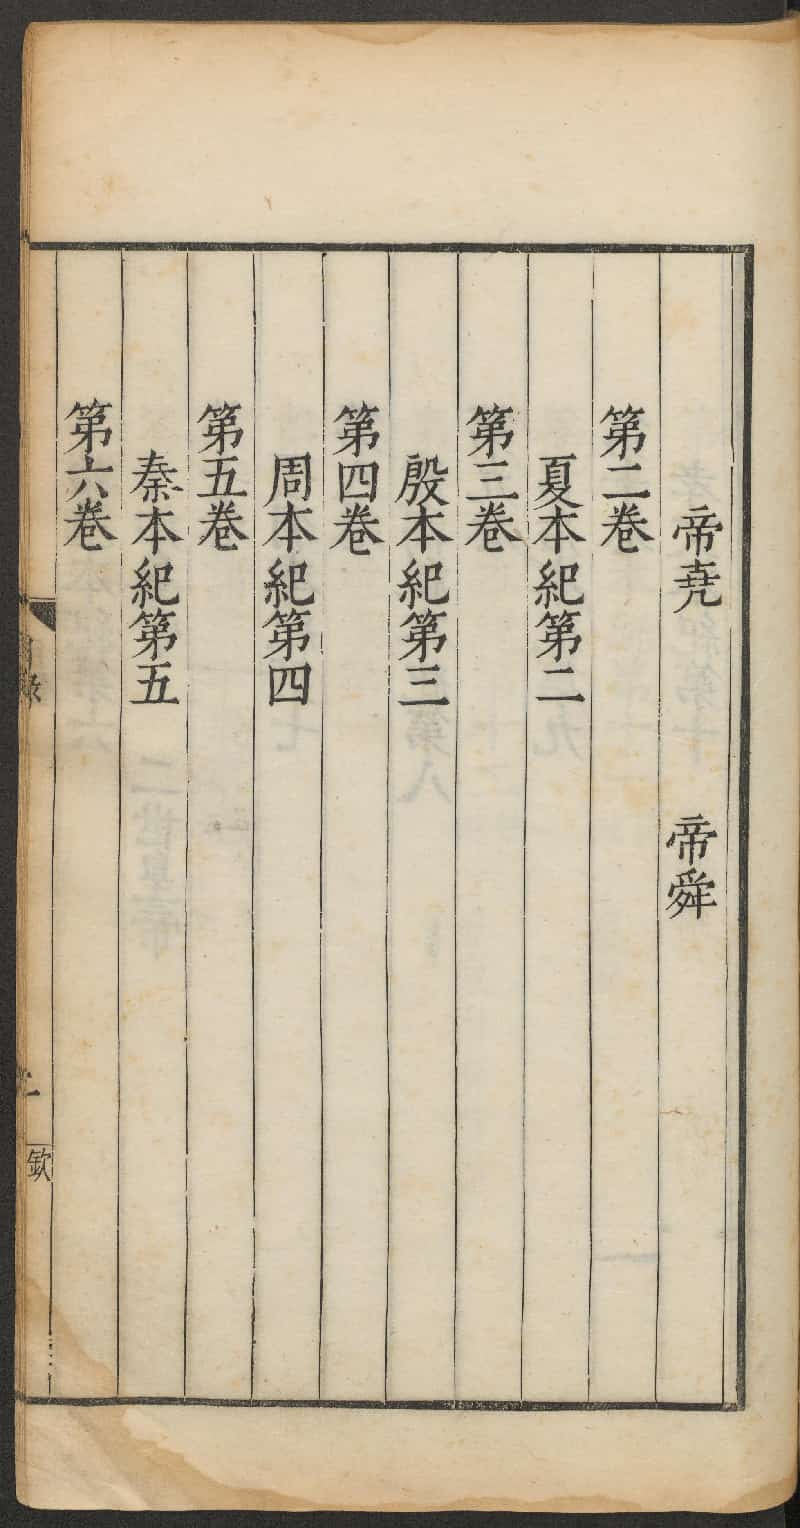 帝堯　帝舜
第二卷
夏本紀第二
第三卷
殷本紀第三
第四卷
周本紀第四
第五卷
秦本紀第五
第六卷
欽